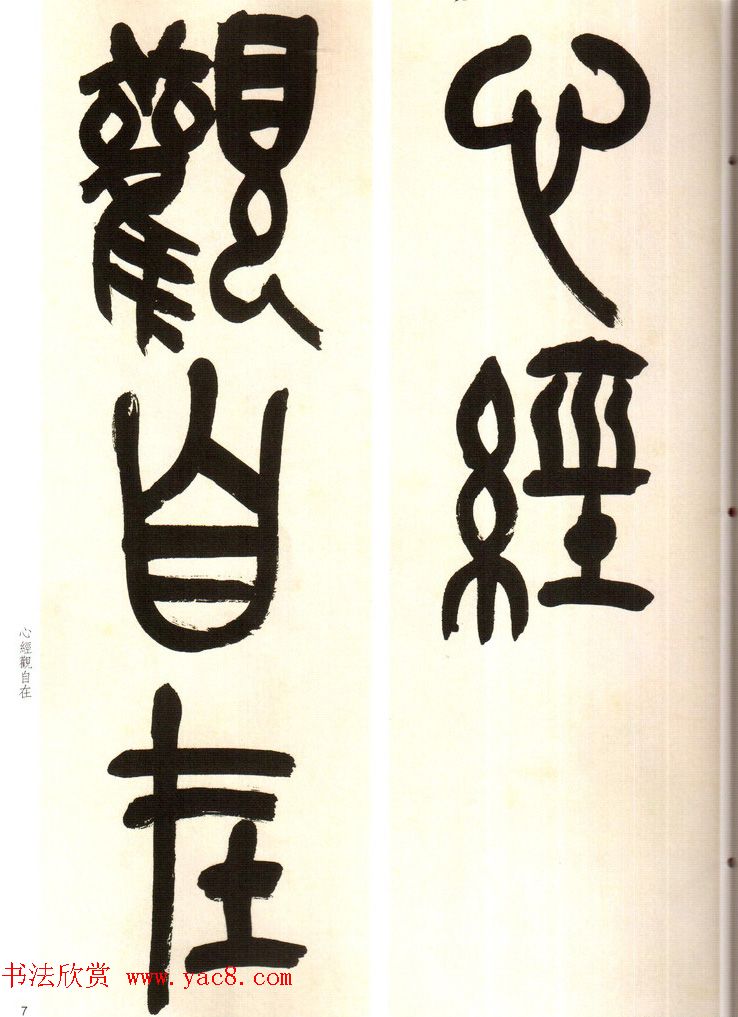 心經
觀自在
心經觀自在
书法欣赏 www.yac8.com
7